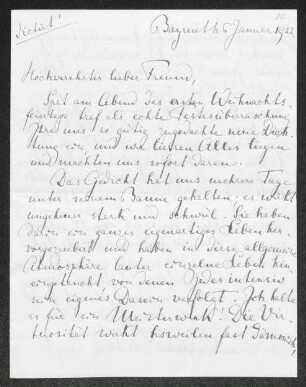 Diktat!
10
Bayreuth 5 Januar 1922
Hochverehrter lieber Freund,
Spät am Abend des ersten Weihnachts-
feiertages traf als echte Festesüberraschung
Ihre uns so gütig zugedachte neue Dich-
tung ein, und wir liessen Alles liegen
und machten uns sofort daran.
Das Gedicht hat uns mehrere Tage
unter seinem Banne gehalten; es wirkt
ungeheuer stark und schwül. Sie haben
darin ein ganzes eigenartiges Leben her-
vorgezaubert und haben in diese allgemeine
Atmosphäre lauter einzelne Leben hin-
eingetaucht, von denen Jedes intensiv
sein eigenes Dasein verfolgt. Ich halte
es für ein Meisterwerk! Die Vir-
tuosität wirkt bisweilen fast dämonisch,